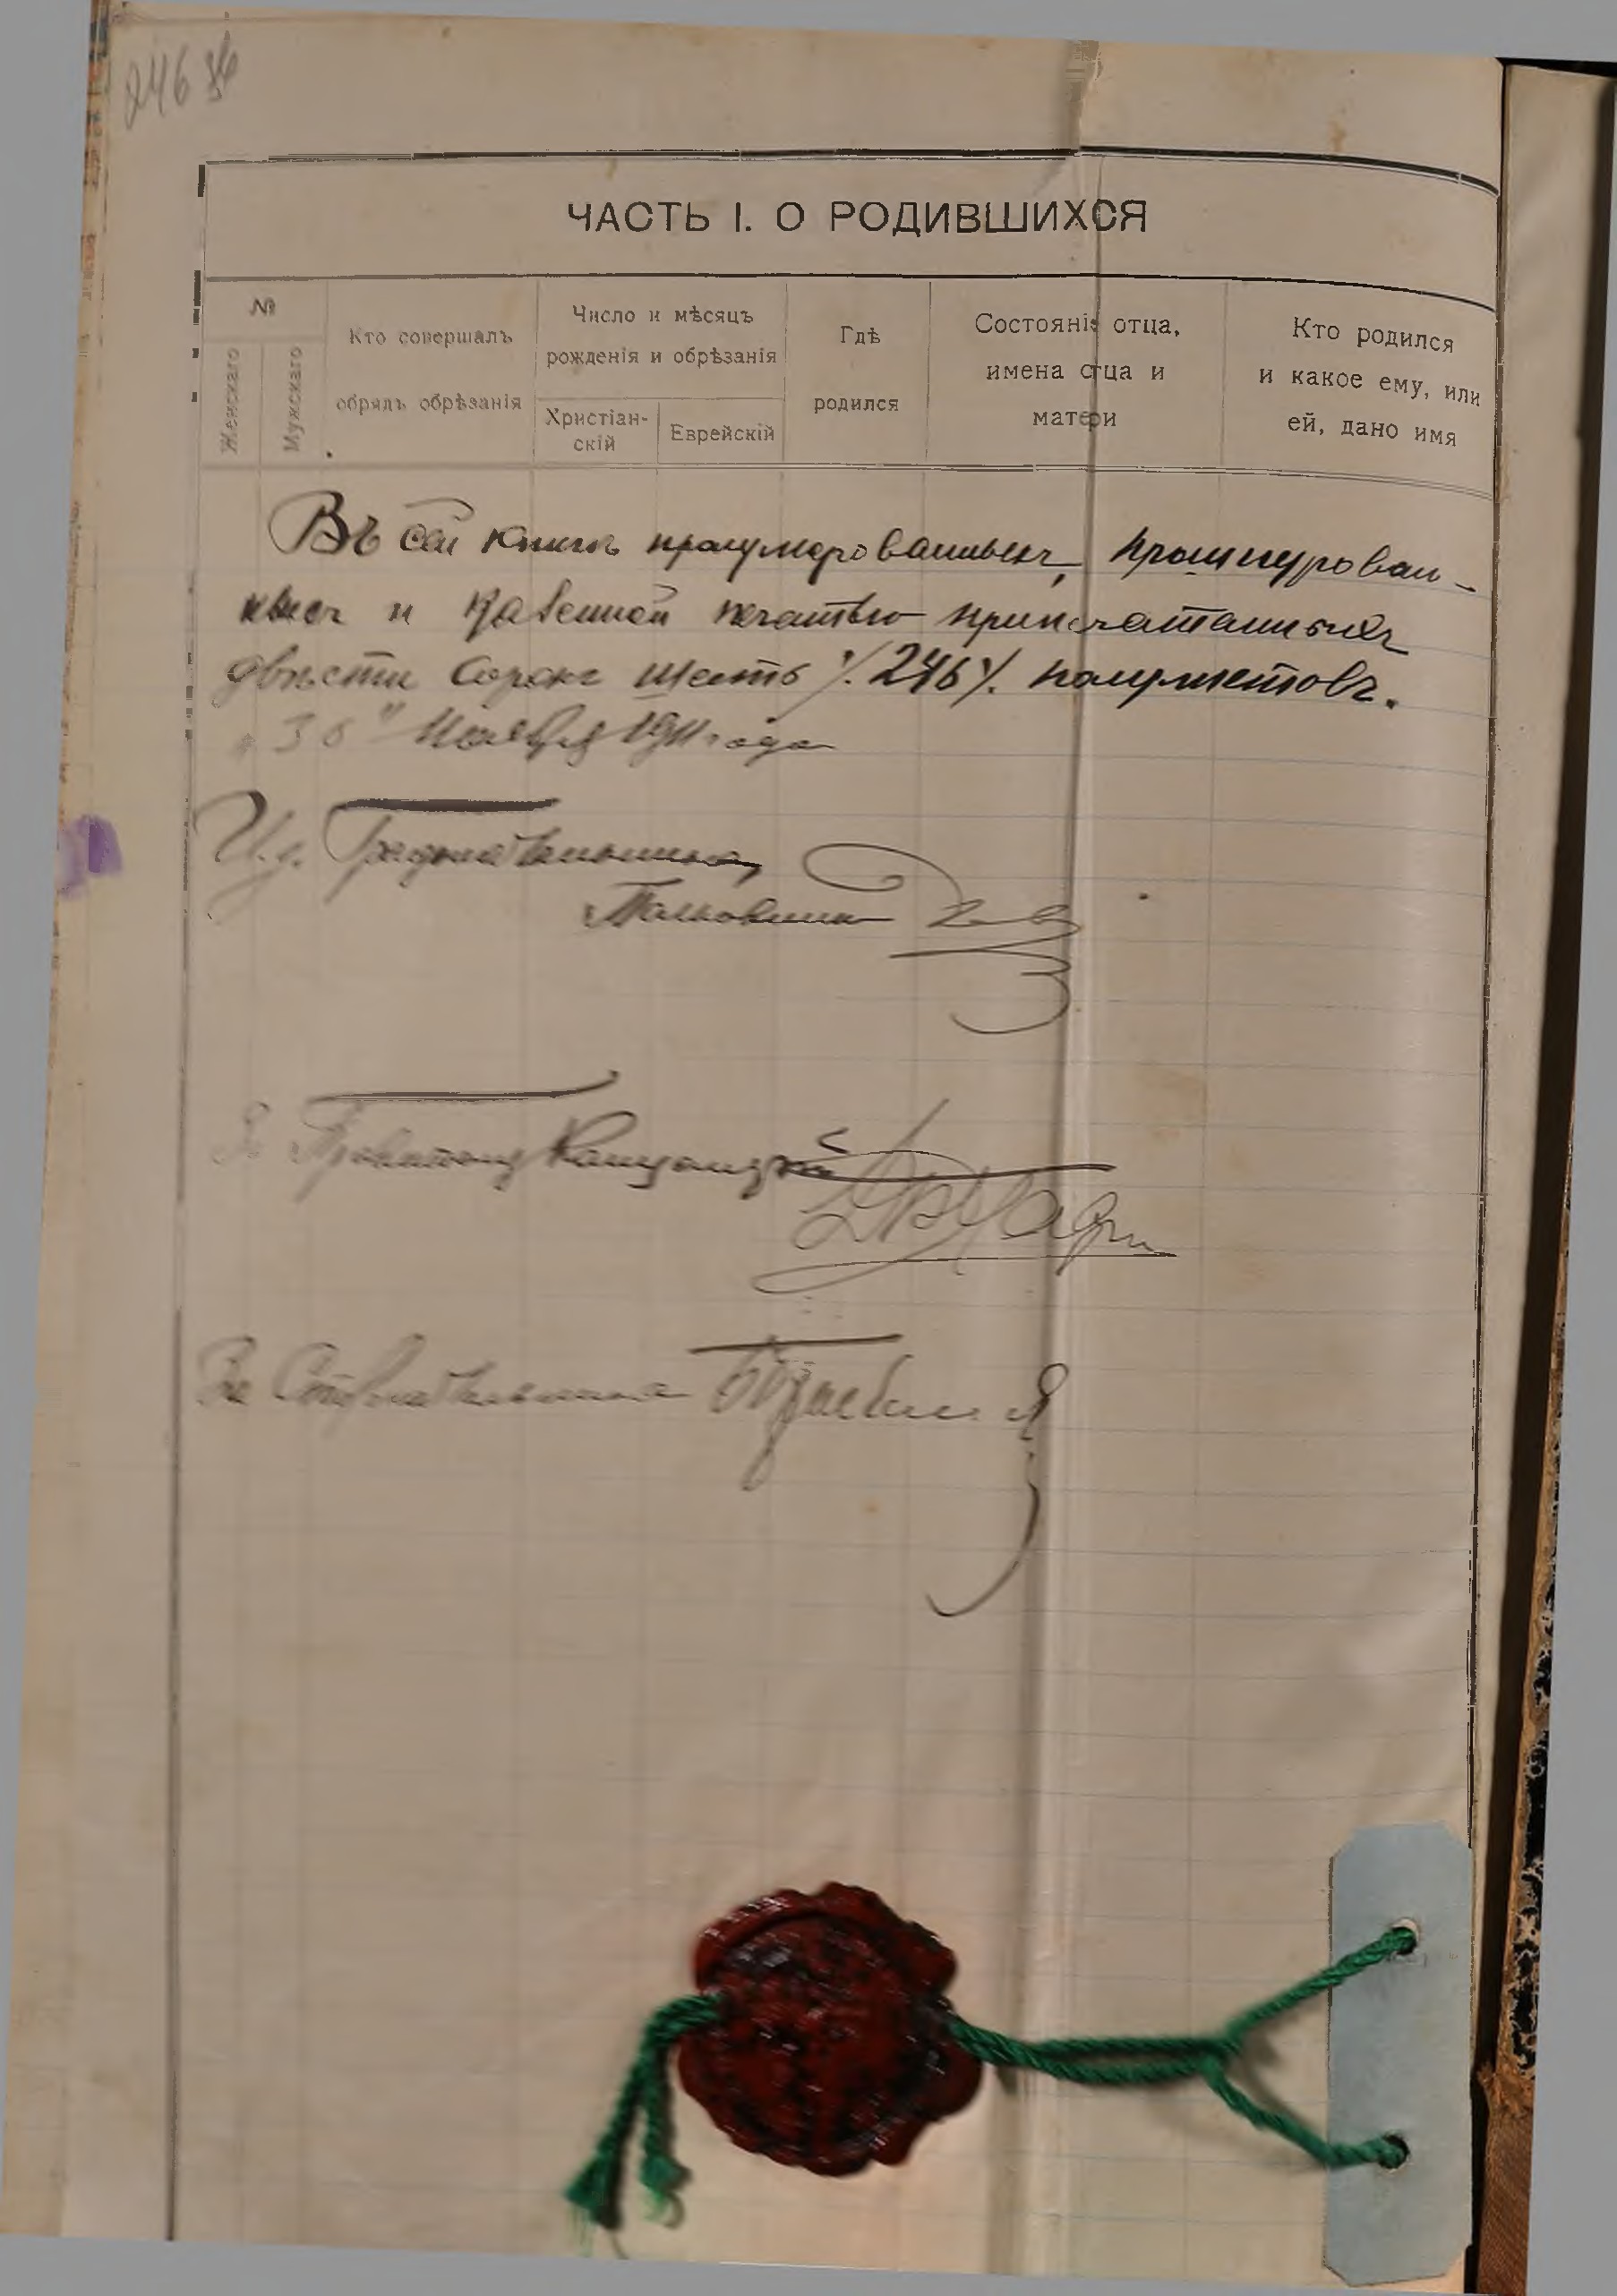 246
ЧАСТЬ I. О РОДИВШИХСЯ
№
Женскаго
Мужскаго
Кто совершалъ
обрядъ обрѣзанія
Число и мѣсяцъ
рожденія и обрѣзанія
Христіан-
скій
Еврейскій
Гдѣ
родился
Состояніе отца,
имена отца и
матери
Кто родился
и какое ему, или
ей, дано имя
Въ сей книгѣ пронумерованныхъ, прошнурован-
ныхъ и казенной печатью припечатанныхъ
двѣсти сорокъ шесть ·/. 246 ·/. полулистовъ.
"30" Ноября 1911 года
И.д. Градоначальника,
Полковникъ
За Правителя Канцеляріи
За Столоначальника